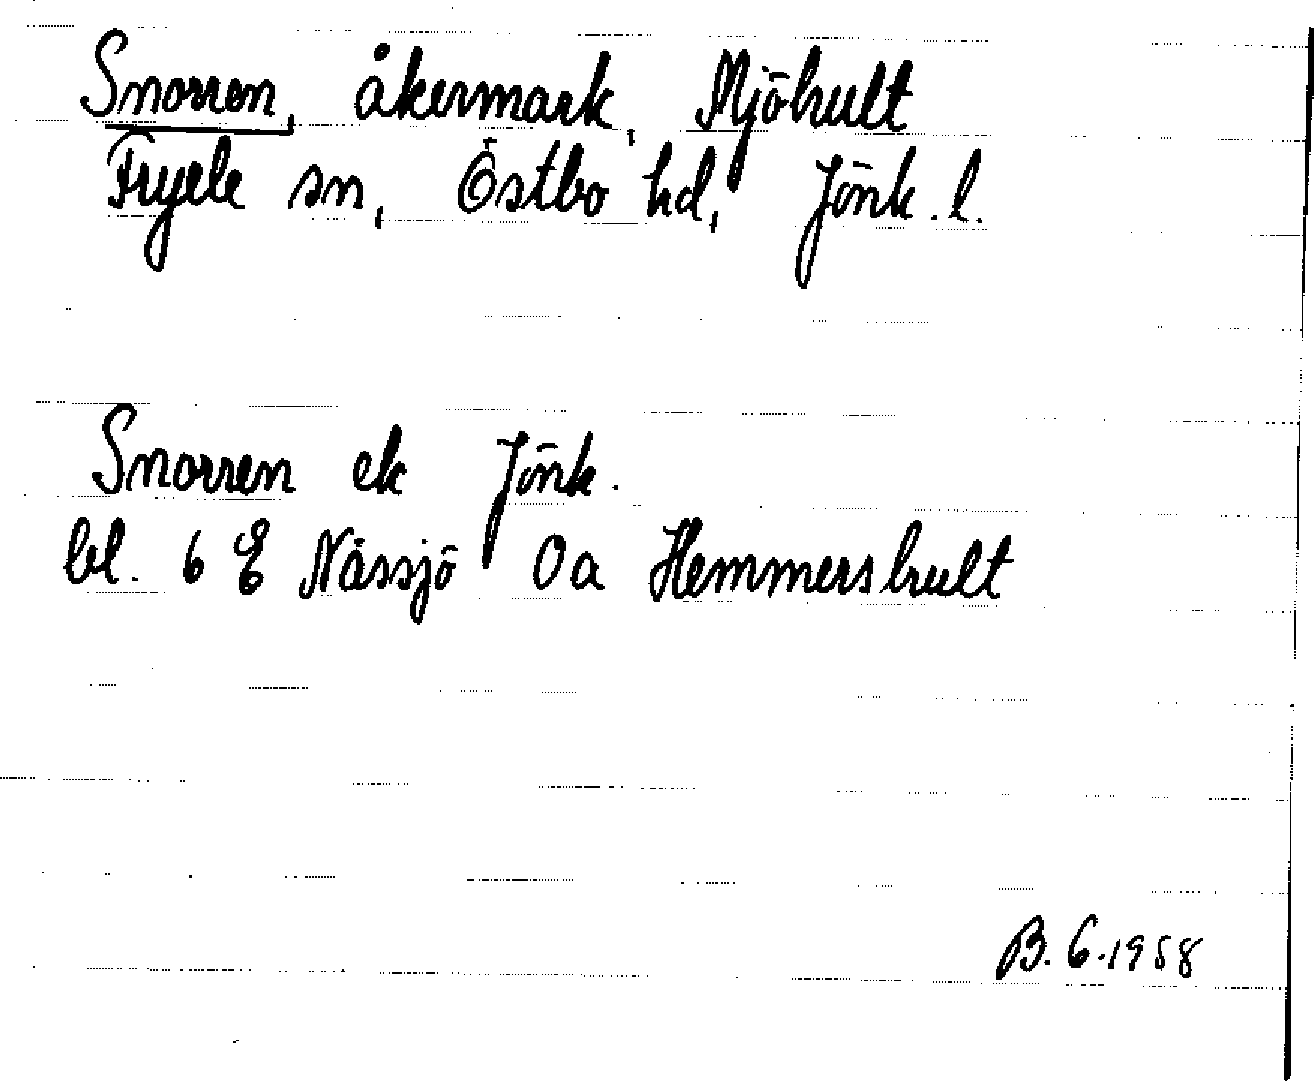 Snorren, åkermark, Mjöhult
Fryele sn, Östbo hd, Jönk. l.
Snorren ek Jönk.
bl. 6 E Nässjö 0a Hemmershult
B. G. 1958